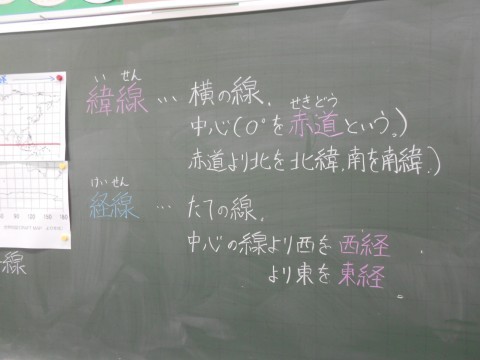 いせん
緯線 … 横の線。
せきどう
中心(0°を赤道という。)
赤道より北を北緯、南を南緯。)
けいせん
経線 … たての線。
中心の線より西を西経、
より東を東経。
線
60 90 120 150 180